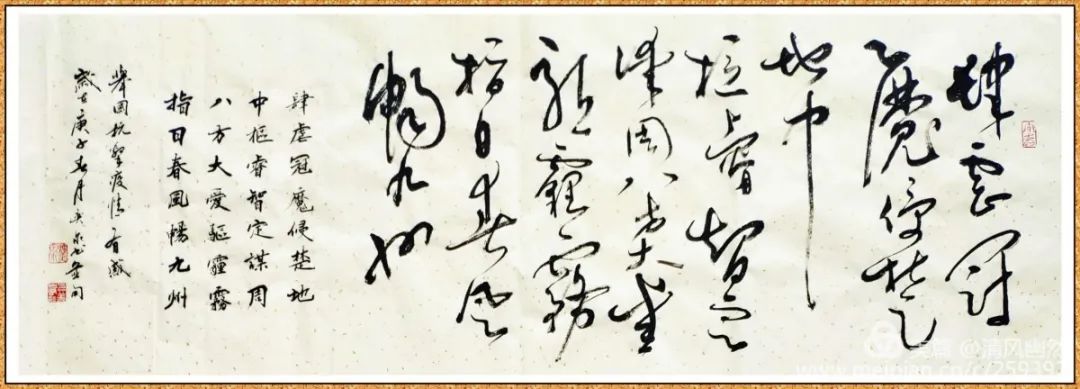 肆虐冠
魔侵楚
地中
枢睿智定
谋周八方大爱
驱霾雾
指日春风
畅九州
肆虐冠魔侵楚地
中枢睿智定謀周
八方大愛驅霾霧
指日春風暢九州
舉国抗擊疫情有感
歲在庚子春月
美篇 @清风幽然
www.meipian.cn/c/259393